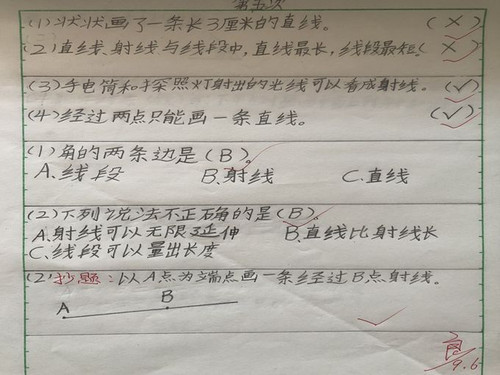 第五次
(1)状状画了一条长3厘米的直线。 (×)
(2)直线、射线与线段中,直线最长,线段最短。(×)
(3)手电筒和探照灯射出的光线可以看成射线。 (√)
(4)经过两点只能画一条直线。 (√)
(1)角的两条边是(B)。
A.线段 B.射线 C.直线
(2)下列说法不正确的是(B)。
A.射线可以无限延伸 B.直线比射线长
C.线段可以量出长度
(2)抄题:以A点为端点画一条经过B点射线。
A B
良
9.6